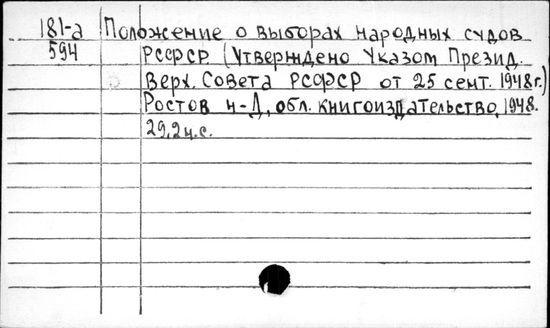 181-а Положение о выборах народных судов
594 РСФСР (Утверждено Указом Презид.
Верх. Совета РСФСР от 25 сент. 1948 г.)
Ростов н-Д, обл. книгоиздательство, 1948.
29,2 н.с.